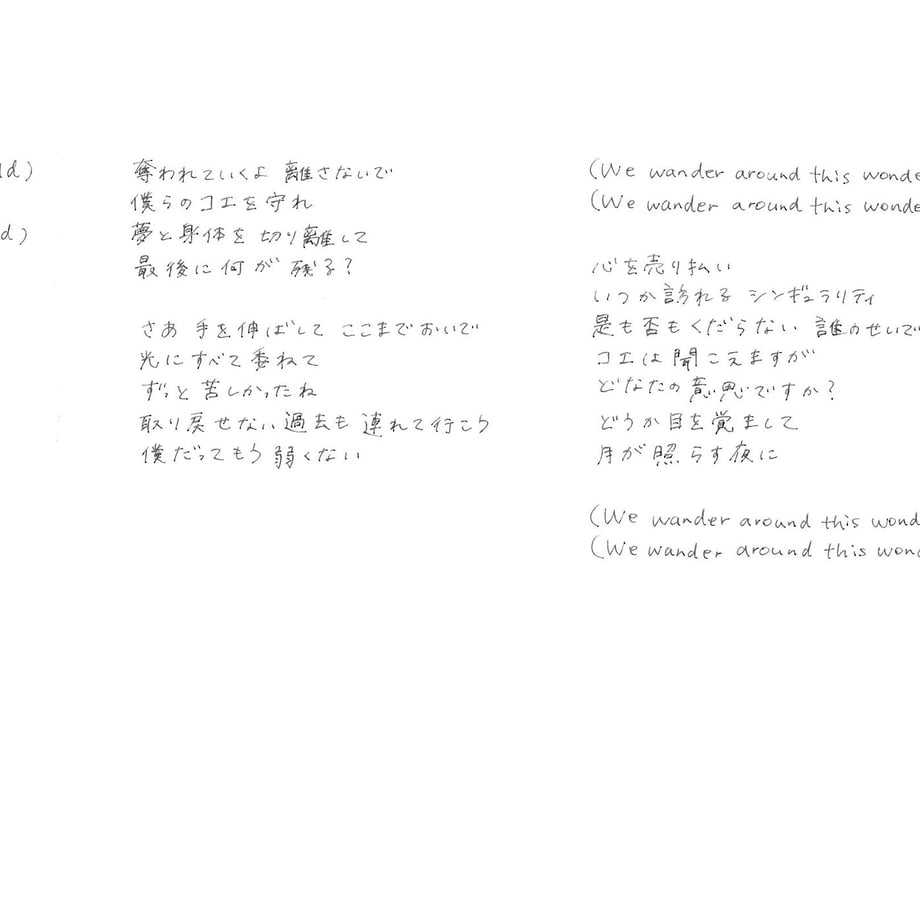 ld)
d)
奪われていくよ 離さないで
僕らのコエを守れ
夢と身体を切り離して
最後に何が残る?
さあ 手を伸ばして ここまでおいで
光にすべて委ねて
ずっと苦しかったね
取り戻せない過去も 連れて行こう
僕だってもう弱くない
(We wander around this wonde
(We wander around this wonde
心を売り払い
いつか訪れる シンギュラリティ
是も否もくだらない 誰のせいで
コエは聞こえますが
どなたの意思ですか?
どうか目を覚まして
月が照らす夜に
(We wander around this wond
(We wander around this wond